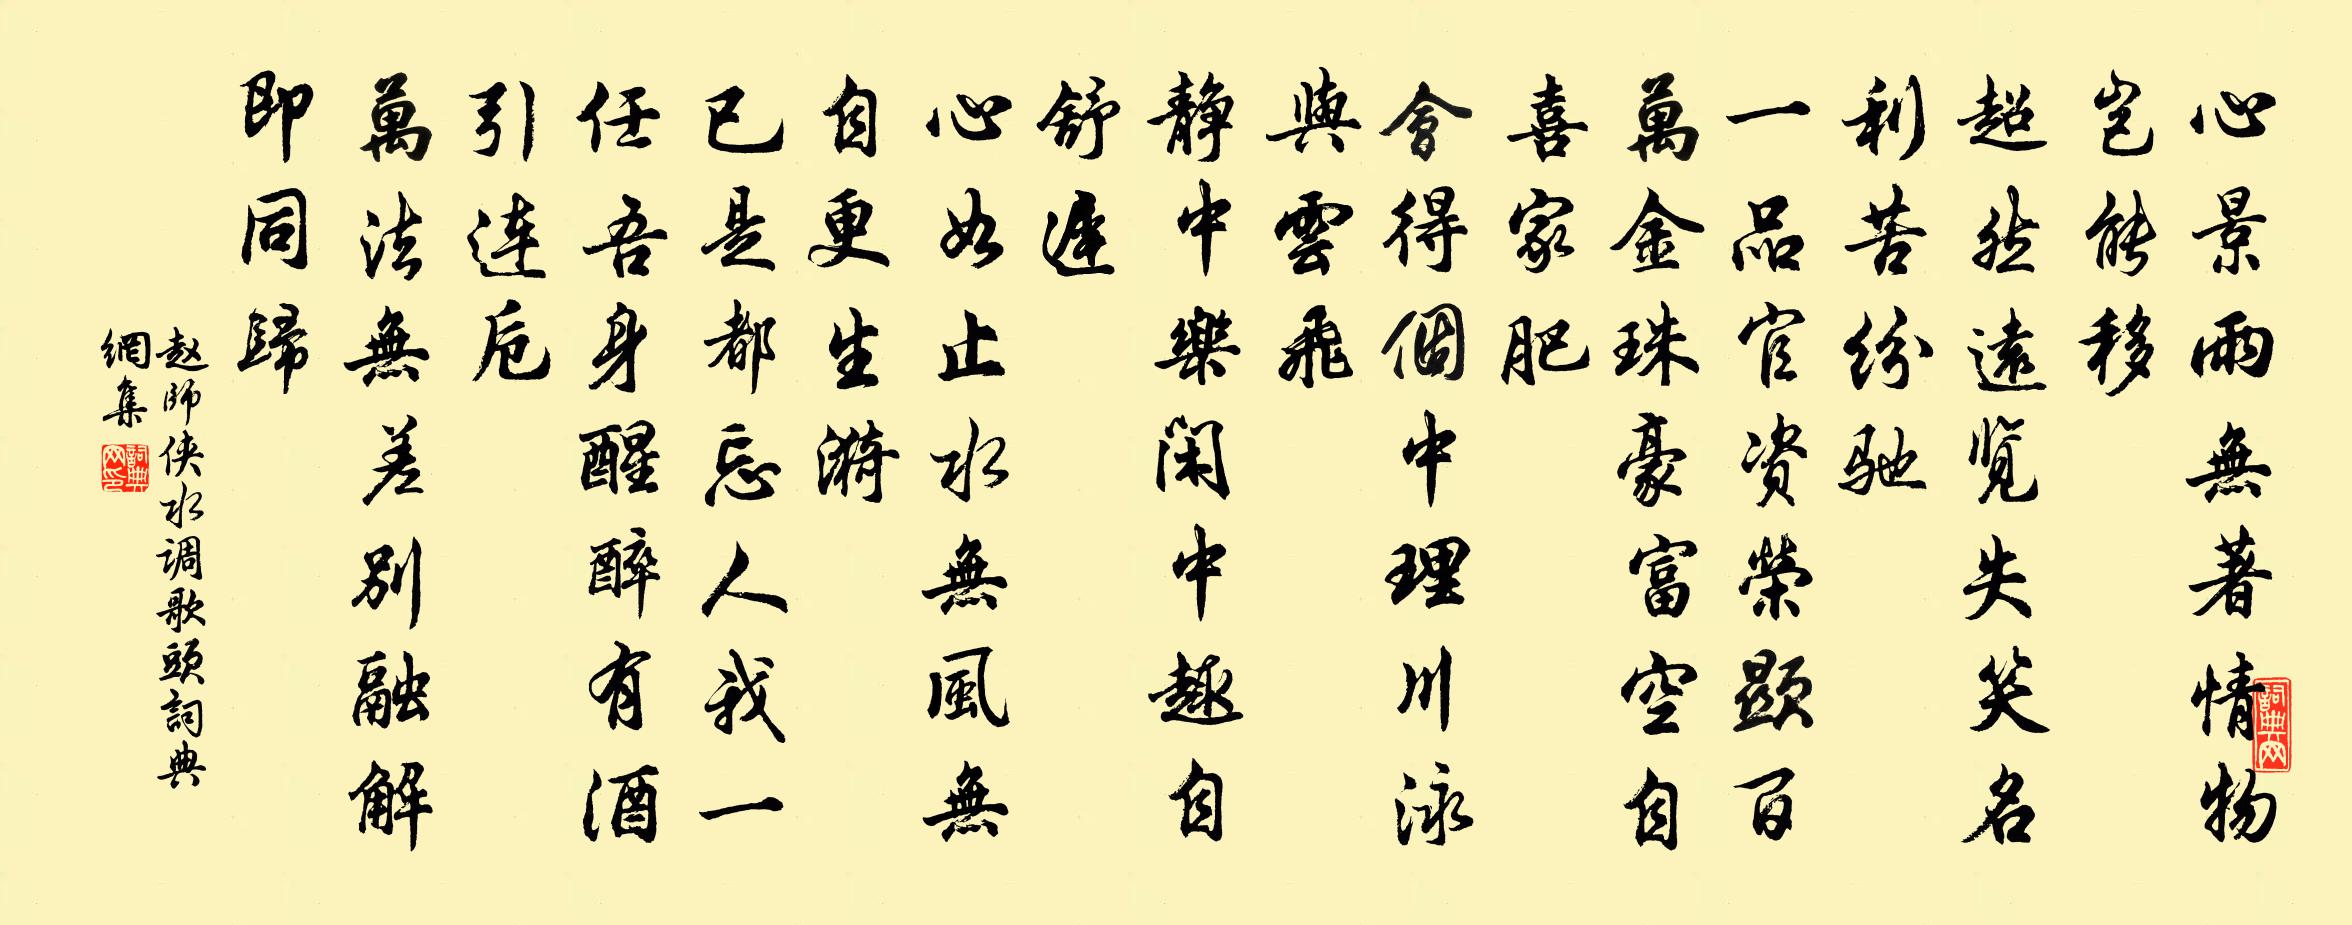 心景兩無著情物
豈能移
超然遠览失笑名
利苦紛馳
一品官资榮顯百
萬金珠豪富空自
喜家肥
會得個中理川泳
與雲飛
靜中樂閑中趣自
舒遲
心如止水無風無
自更生漪
已是都忘人我一
任吾身醒醉有酒
引连卮
萬法無差別融解
即同歸
赵師侠水调歌頭詞典
網集
詞典網
詞典網印